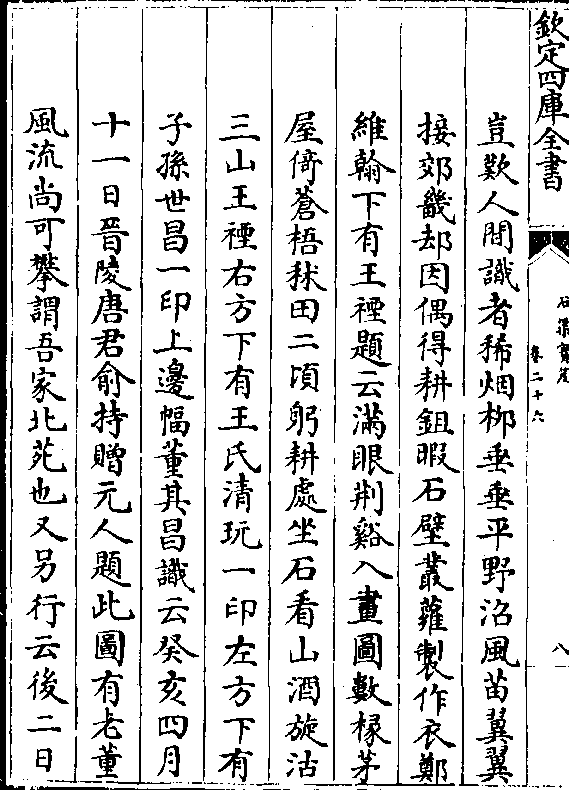 欽定四庫全書
石渠寶笈
卷二十六
八
豈歎人間識者稀烟栁垂垂平野沿風苗翼翼
接郊畿却因偶得耕鉏暇石壁叢蘿製作衣鄭
維翰下有王禋題云滿眼荆谿入畫圖數椽茅
屋倚蒼梧秫田二頃躬耕處坐石看山酒旋沽
三山王禋右方下有王氏清玩一印左方下有
子孫世昌一印上邊幅董其昌識云癸亥四月
十一日晉陵唐君俞持贈元人題此圖有老董
風流尚可攀謂吾家北苑也又另行云後二日